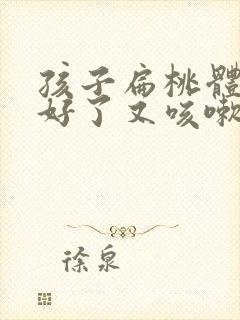 孩子扁桃體
好了又咳嗽
徐泉